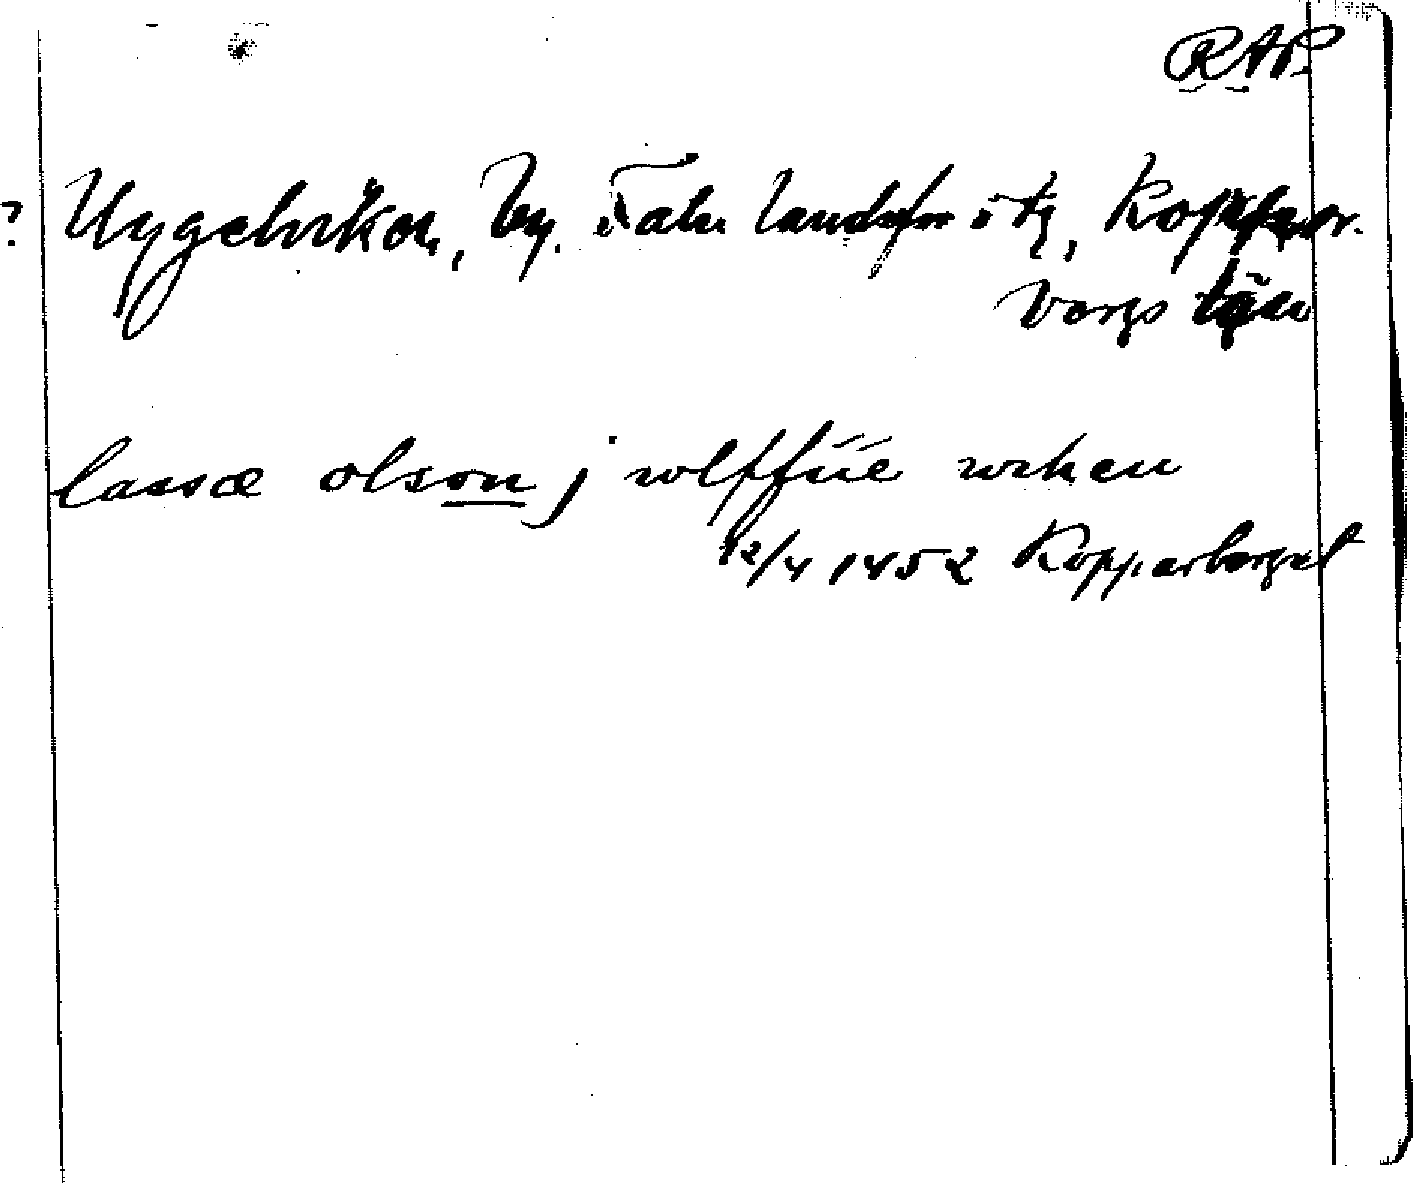 RAP.
? Uggelviken, by. Falu landsförs. o tg, Koppar-
bergs län
lassæ olson j wlffüe wiken
12/4 1452 Kopparberget